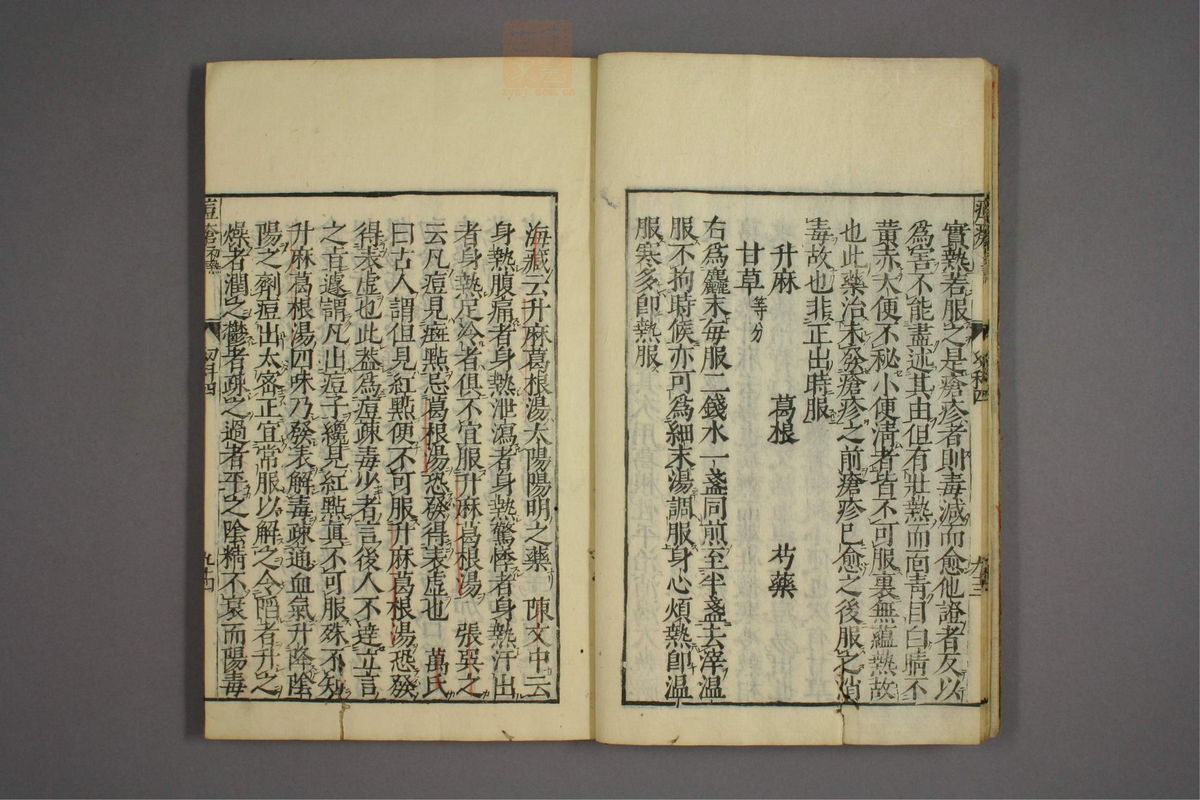 實熱若服之是瘡疹者則毒減而愈他證者久以
爲害不能盡述其由但有壯熱而面青目白睛不
黃赤大便不秘小便淸者皆不可服裏無蘊熱故
也此藥治未發瘡疹之前瘡疹已愈之後服之消
毒故也非正出時服
升麻 葛根 芍藥
甘草等分
右爲麤末每服二錢水一盞同煎至半盞去滓溫
服不拘時候亦可爲細末湯調服身心煩熱卽溫
服寒多卽熱服
九十三
海藏云升麻葛根湯太陽陽明之藥 陳文中云
身熱腹痛者身熱泄瀉者身熱驚悸者身熱汗出
者身熱足冷者俱不宜服升麻葛根湯 張與之
云凡痘見斑點忌葛根湯恐發得表虛也 萬氏
曰古人謂但見紅點便不可服升麻葛根湯恐發
得表虛也此蓋爲痘疎毒少者言後人不達立言
之旨遽謂凡出痘子纔見紅點眞不可服殊不知
升麻葛根湯四味乃發表解毒疎通血氣升降陰
陽之劑痘出太密正宜常服以解之令陷者升之
燥者潤之鬱者疎之過者平之陰精不衰而陽毒
九十四